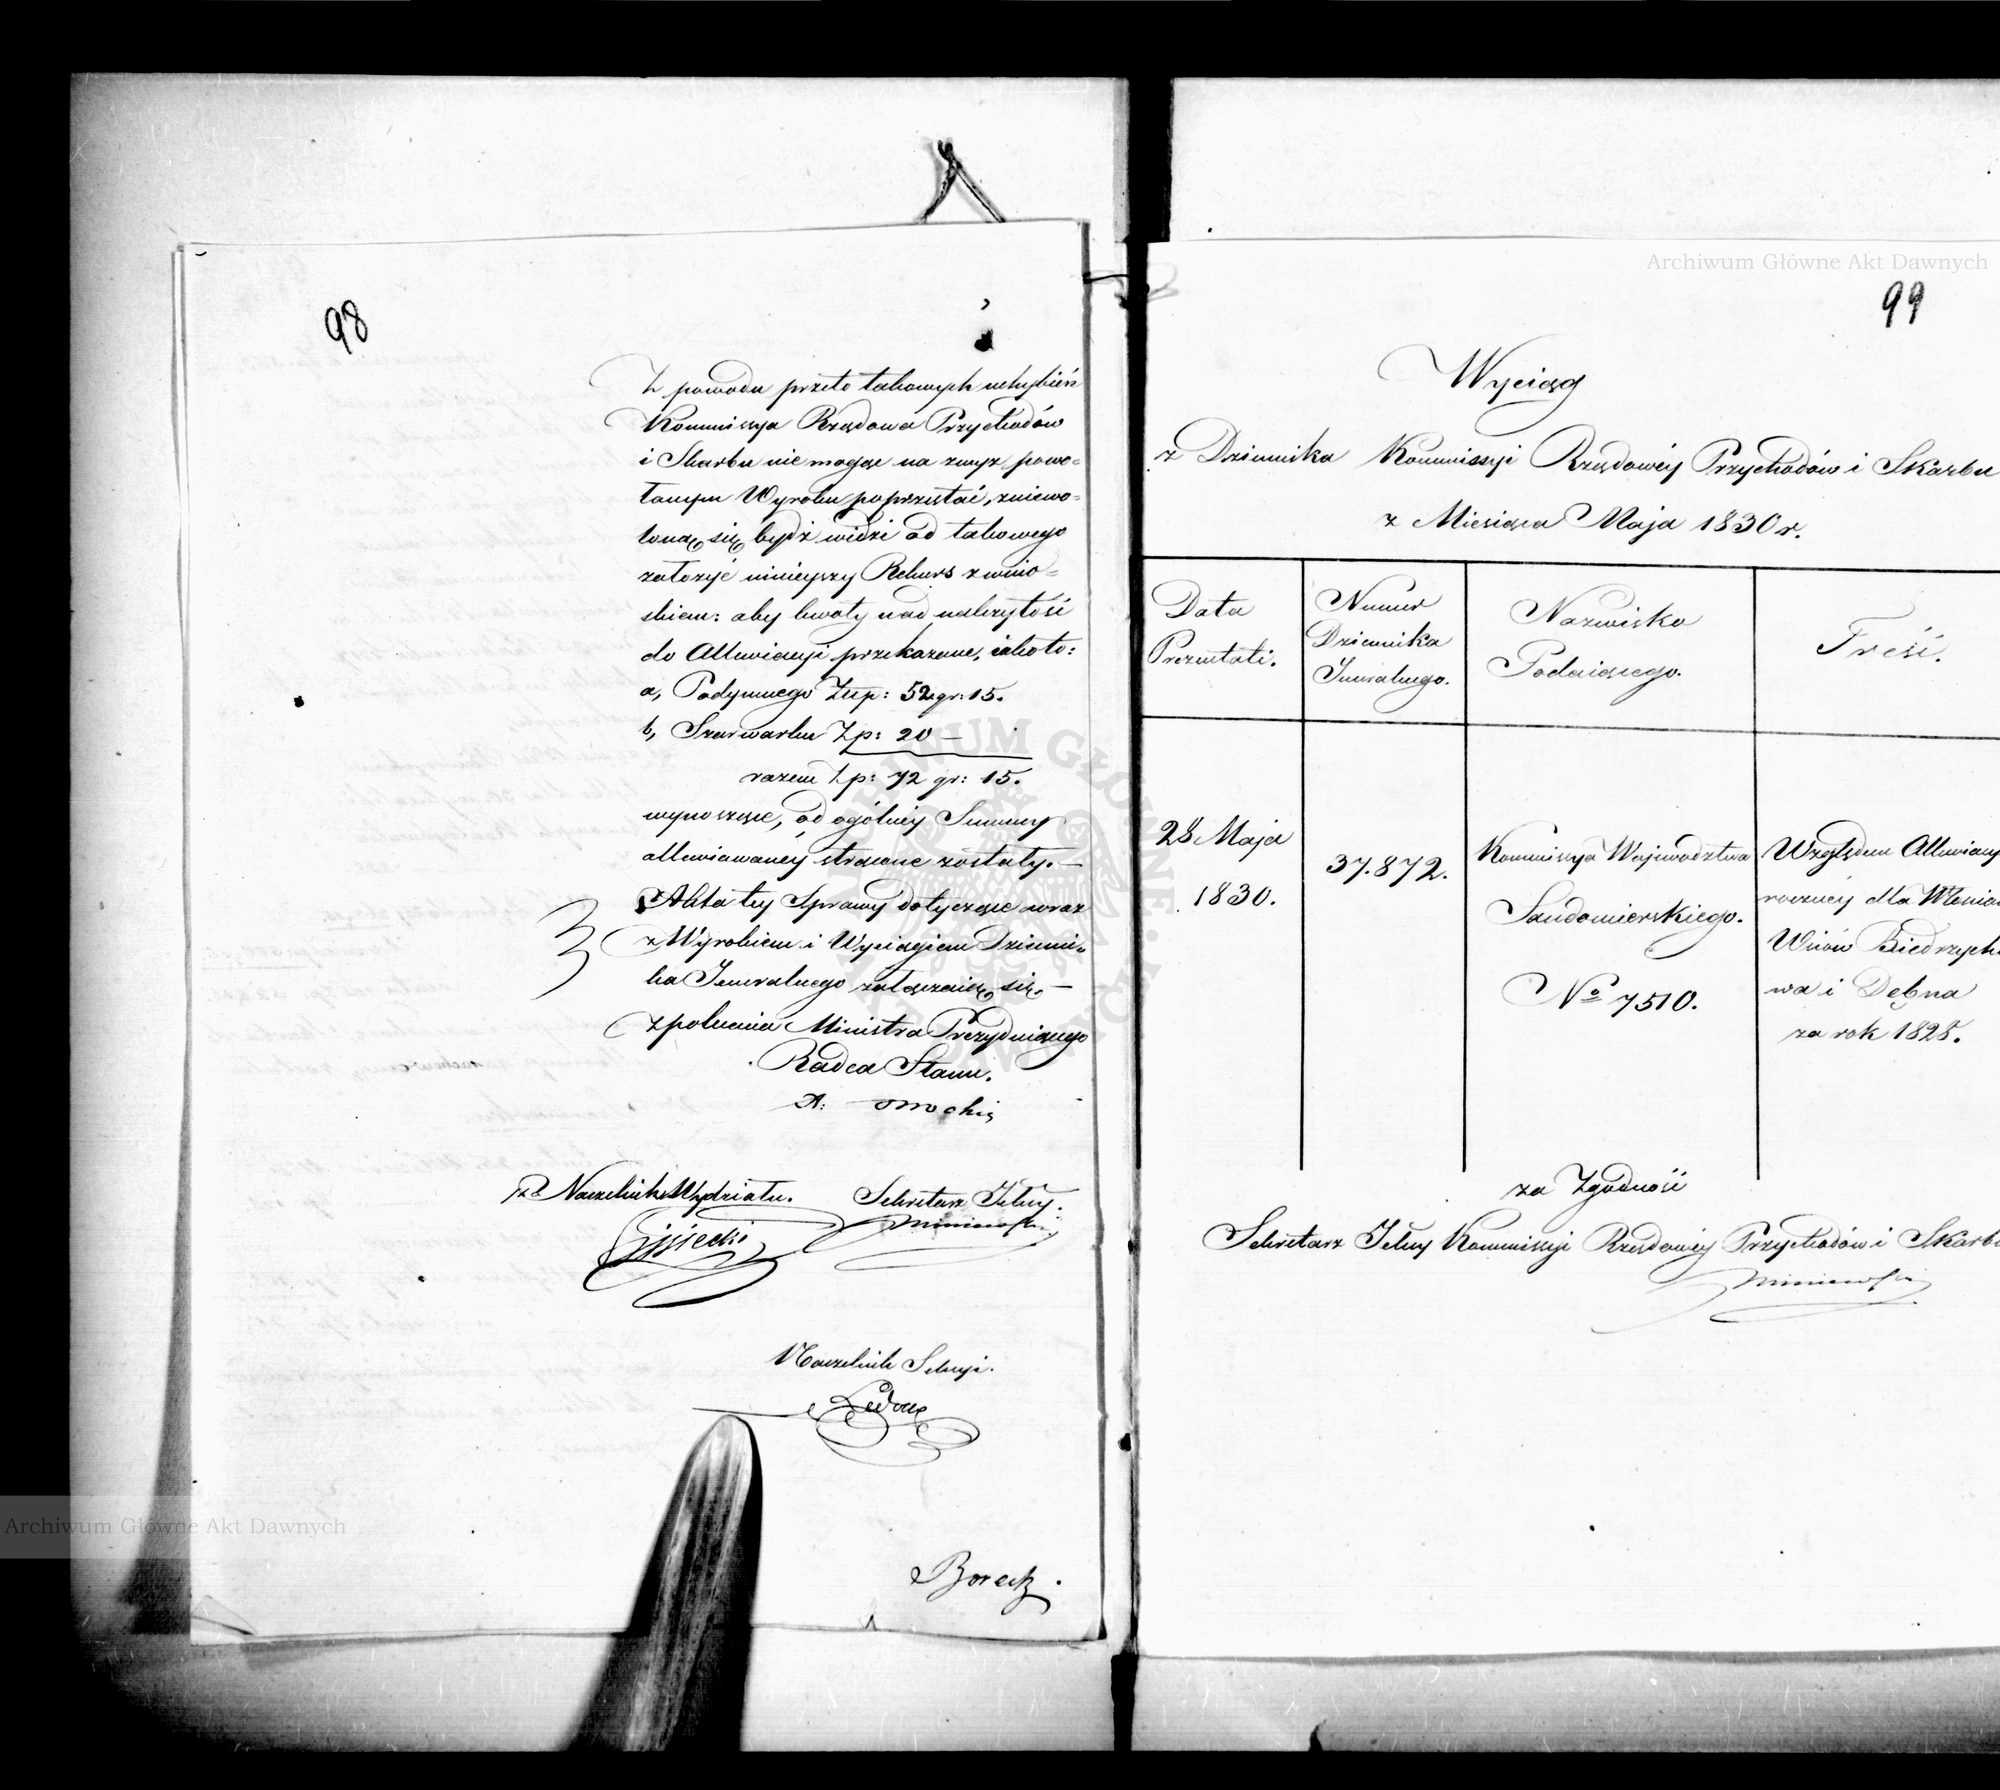 98
Z powodu przeto takowych uchybień
Kommissya Rządowa Przychodów
i Skarbu nie mogąc na zwyż powo-
łanym Wyroku poprzestać, zniewo-
loną się bydź widzi od takowego
założyć ninieyszy Rekurs z wnio-
skiem: aby kwoty nad należytość
do Alleviacyi przekazane, iakoto:
a, Podymnego Złp: 52 gr: 15.
b, Szarwarku Zp: 20 —
razem Zp: 72 gr: 15.
wynoszące, od ogólney Summy
alleviowaney strącone zostały. —
Akta tey Sprawy dotyczące wraz
z Wyrokiem i Wyciągiem Dzienni-
ka Jeneralnego załączaią się. —
z polecenia Ministra Prezyduiącego
Radca Stanu.
Naczelnik Wydziału. Sekretarz Jlny.
Naczelnik Sekcyi.
99
Wyciąg
z Dziennika Kommissyi Rządowéy Przychodów i Skarbu
z Miesiąca Maja 1830 r.
Data
Prezentati.
Numer
Dziennika
Jeneralnego.
Nazwisko
Podaiącego.
Treść.
28 Maja
1830.
37.872.
Kommissya Województwa
Sandomierskiego.
No 7510.
Względem Alleviacy
roczney dla
Wsiów Biedrzych
wa i Dębna
za rok 1828.
za Zgodność
Sekretarz Jelny Kommissyi Rządowéy Przychodów i Skarbu
Archiwum Główne Akt Dawnych
Archiwum Główne Akt Dawnych